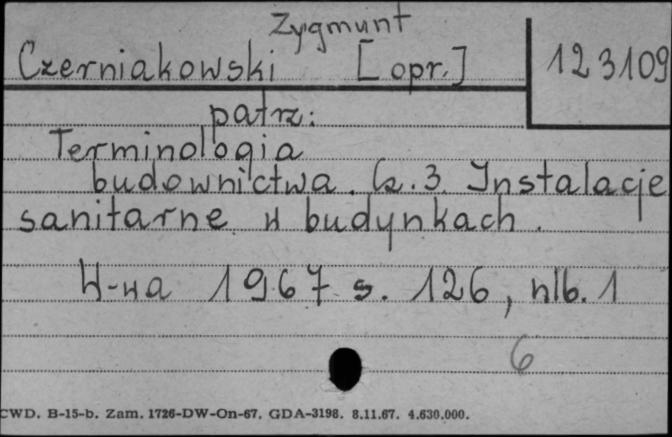 Zygmunt
Czerniakowski [opr.] 123109
patrz:
Terminologia
budownictwa. Cz. 3. Instalacje
sanitarne w budynkach.
W-wa 1967 s. 126, nlb. 1
6
CWD. B-15-b. Zam. 1726-DW-On-67. GDA-3198. 8.11.67. 4.630.000.